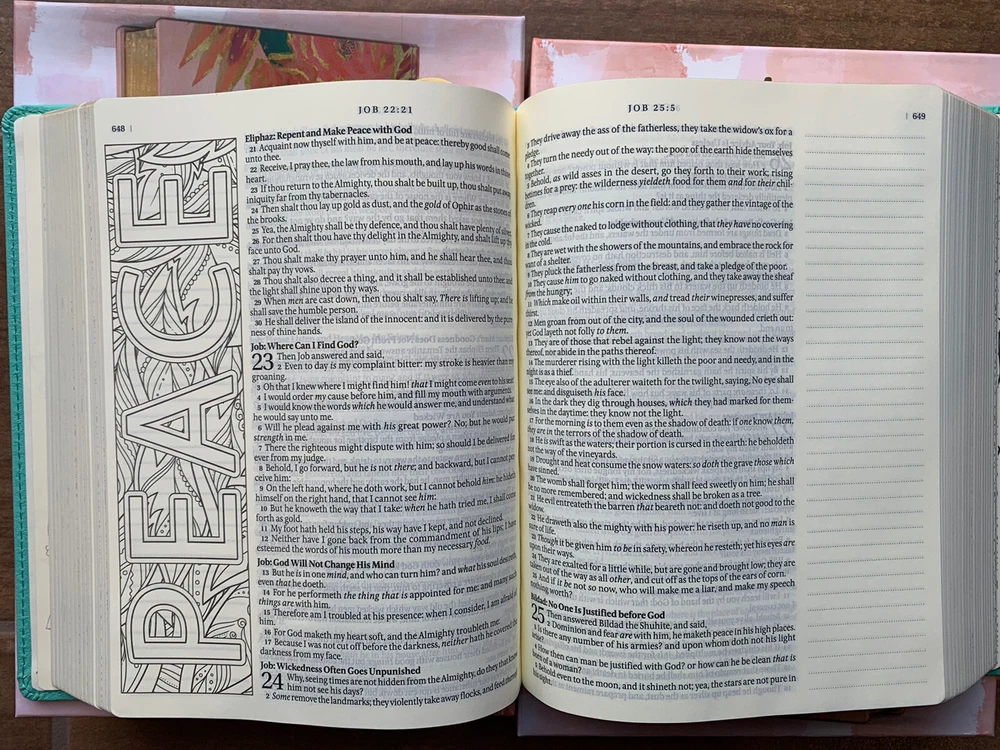 JOB 22:21
648 |
PEACE
Eliphaz: Repent and Make Peace with God
21 Acquaint now thyself with him, and be at peace: thereby good shall come
unto thee.
22 Receive, I pray thee, the law from his mouth, and lay up his words in thine
heart.
23 If thou return to the Almighty, thou shalt be built up, thou shalt put away
iniquity far from thy tabernacles.
24 Then shalt thou lay up gold as dust, and the gold of Ophir as the stones of
the brooks.
25 Yea, the Almighty shall be thy defence, and thou shalt have plenty of silver.
26 For then shalt thou have thy delight in the Almighty, and shalt lift up thy
face unto God.
27 Thou shalt make thy prayer unto him, and he shall hear thee, and thou
shalt pay thy vows.
28 Thou shalt also decree a thing, and it shall be established unto thee: and
the light shall shine upon thy ways.
29 When men are cast down, then thou shalt say, There is lifting up; and he
shall save the humble person.
30 He shall deliver the island of the innocent: and it is delivered by the pure-
ness of thine hands.
Job: Where Can I Find God?
23 Then Job answered and said,
2 Even to day is my complaint bitter: my stroke is heavier than my
groaning.
3 Oh that I knew where I might find him! that I might come even to his seat!
4 I would order my cause before him, and fill my mouth with arguments.
5 I would know the words which he would answer me, and understand what
he would say unto me.
6 Will he plead against me with his great power? No; but he would put
strength in me.
7 There the righteous might dispute with him; so should I be delivered for
ever from my judge.
8 Behold, I go forward, but he is not there; and backward, but I cannot per-
ceive him:
9 On the left hand, where he doth work, but I cannot behold him: he hideth
himself on the right hand, that I cannot see him:
10 But he knoweth the way that I take: when he hath tried me, I shall come
forth as gold.
11 My foot hath held his steps, his way have I kept, and not declined.
12 Neither have I gone back from the commandment of his lips; I have
esteemed the words of his mouth more than my necessary food.
Job: God Will Not Change His Mind
13 But he is in one mind, and who can turn him? and what his soul desireth,
even that he doeth.
14 For he performeth the thing that is appointed for me: and many such
things are with him.
15 Therefore am I troubled at his presence: when I consider, I am afraid of
him.
16 For God maketh my heart soft, and the Almighty troubleth me:
17 Because I was not cut off before the darkness, neither hath he covered the
darkness from my face.
Job: Wickedness Often Goes Unpunished
24 Why, seeing times are not hidden from the Almighty, do they that know
him not see his days?
2 Some remove the landmarks; they violently take away flocks, and feed thereof.
JOB 25:5
| 649
3 They drive away the ass of the fatherless, they take the widow's ox for a
pledge.
4 They turn the needy out of the way: the poor of the earth hide themselves
together.
5 Behold, as wild asses in the desert, go they forth to their work; rising
betimes for a prey: the wilderness yieldeth food for them and for their chil-
dren.
6 They reap every one his corn in the field: and they gather the vintage of the
wicked.
7 They cause the naked to lodge without clothing, that they have no covering
in the cold.
8 They are wet with the showers of the mountains, and embrace the rock for
want of a shelter.
9 They pluck the fatherless from the breast, and take a pledge of the poor.
10 They cause him to go naked without clothing, and they take away the sheaf
from the hungry;
11 Which make oil within their walls, and tread their winepresses, and suffer
thirst.
12 Men groan from out of the city, and the soul of the wounded crieth out:
yet God layeth not folly to them.
13 They are of those that rebel against the light; they know not the ways
thereof, nor abide in the paths thereof.
14 The murderer rising with the light killeth the poor and needy, and in the
night is as a thief.
15 The eye also of the adulterer waiteth for the twilight, saying, No eye shall
see me: and disguiseth his face.
16 In the dark they dig through houses, which they had marked for them-
selves in the daytime: they know not the light.
17 For the morning is to them even as the shadow of death: if one know them,
they are in the terrors of the shadow of death.
18 He is swift as the waters; their portion is cursed in the earth: he beholdeth
not the way of the vineyards.
19 Drought and heat consume the snow waters: so doth the grave those which
have sinned.
20 The womb shall forget him; the worm shall feed sweetly on him; he shall
be no more remembered; and wickedness shall be broken as a tree.
21 He evil entreateth the barren that beareth not: and doeth not good to the
widow.
22 He draweth also the mighty with his power: he riseth up, and no man is
sure of life.
23 Though it be given him to be in safety, whereon he resteth; yet his eyes are
upon their ways.
24 They are exalted for a little while, but are gone and brought low; they are
taken out of the way as all other, and cut off as the tops of the ears of corn.
25 And if it be not so now, who will make me a liar, and make my speech
nothing worth?
Bildad: No One Is Justified before God
25 Then answered Bildad the Shuhite, and said,
2 Dominion and fear are with him, he maketh peace in his high places.
3 Is there any number of his armies? and upon whom doth not his light
arise?
4 How then can man be justified with God? or how can he be clean that is
born of a woman?
5 Behold even to the moon, and it shineth not; yea, the stars are not pure in
his sight.